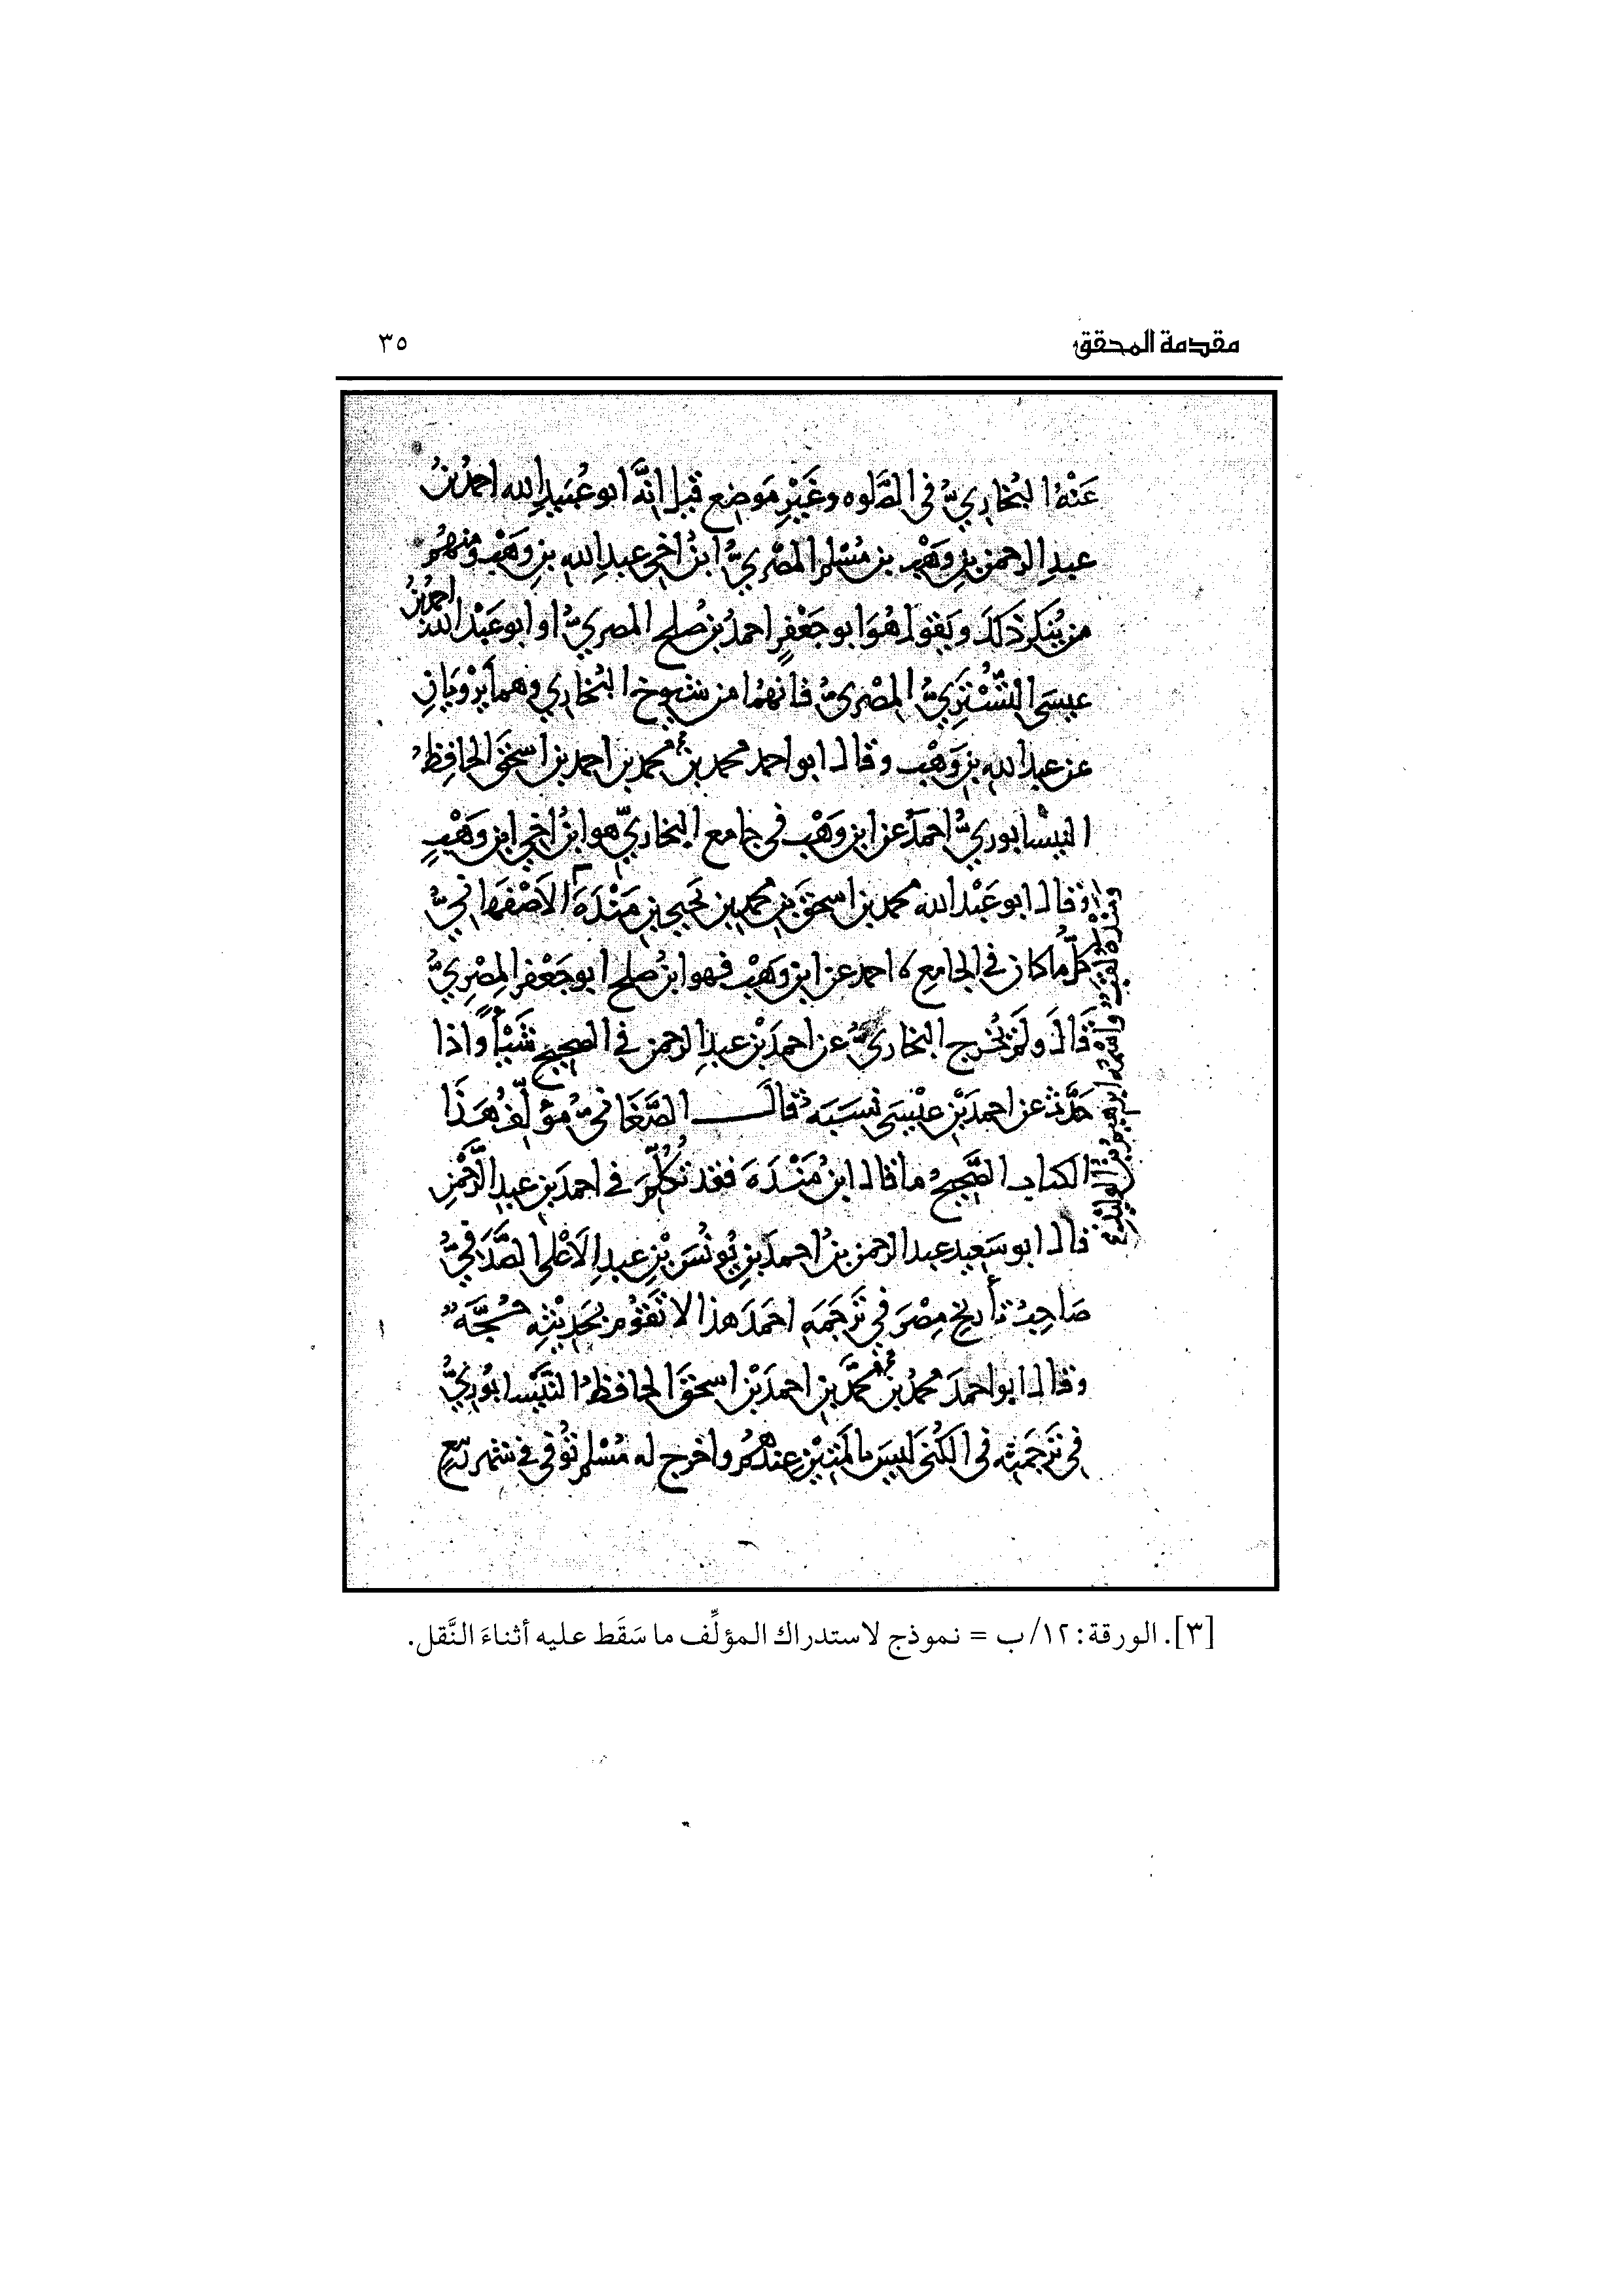 مقدمة المحقق ٣٥
عَنْهُ البُخاريُّ في الصَّلوه وغَيْرِ مَوضِعٍ قيل انَّهُ ابو عُبَيدِ الله احمدُ بنُ
عبدِ الرحمن بنِ وَهْبِ بن مُسْلم المِصْريُّ ابنُ اخي عبدِ اللهِ بنِ وَهْبٍ ومنهُم
من يُنكر ذلكَ ويَقول هُوَ ابو جَعْفرٍ احمدُ بنُ صلح المصريُّ او ابو عَبْد الله احمدُ بنُ
عيسَى التُّسْتَرِيُّ المِصْريُّ فانهما من شيوخ البُخاري وهما يَرْوِيَانِ
عن عبد اللهِ بنِ وَهْب وقال ابو احمد محمد بن محمد بن احمد بن اسحقَ الحافِظُ
النيْسابوريُّ احمدُ عن ابن وَهْب في جامع البخاريِّ هو ابنُ اخي ابن وَهْبٍ
وقال ابو عَبْد الله محمد بن اسحقَ بنِ محمدِ بن يَحيى بنِ مَنْدَهَ الاَصْفَهانيُّ
كلُّ ما كان في الجامع احمد عن ابن وَهْب فهو ابنُ صلح ابو جَعْفر المِصْرِيُّ
قالَ ولَمْ يُخرج البخاريُّ عن احمدَ بْنِ عبدِ الرحمن في الصحيح شَيْأً واذا
حَدَّث عن احمدَ بْنِ عيْسَى نسَبَه قالَ الصَّغانيُّ مؤلّفُ هَذَا
الكتاب الصَّحيحُ ما قال ابنُ مَنْدَهَ فقد تُكُلِّمَ في احمدَ بنِ عبدِ الرَّحمنِ
قال ابو سَعِيد عبد الرحمن بنُ احمدَ بنِ يُونُسَ بْنِ عبدِ الاَعْلى الصَّدَفيُّ
صَاحبُ تأريخ مِصْرَ في تَرجَمَهِ احمَدَ هذا لا تَقُوْم بحَدِيْثِه حُجَّه
وقال ابو احمدَ محمدُ بنُ محمَّدِ بنِ احمدَ بْنِ اسحقَ الحافظُ النَّيْسابُوريُّ
في تَرجَمتِه في الكُنَى لَيسَ بالمَتِيْنِ عندهُم واخرج له مُسْلم تُوفي في شهر رَبيع
ومَنْدَه لقبٌ واسمُه ابرهيمُ بنُ الوليدِ
[٣]. الورقة: ١٢/ب = نموذج لاستدراك المؤلِّف ما سَقَط عليه أثناءَ النَّقل.